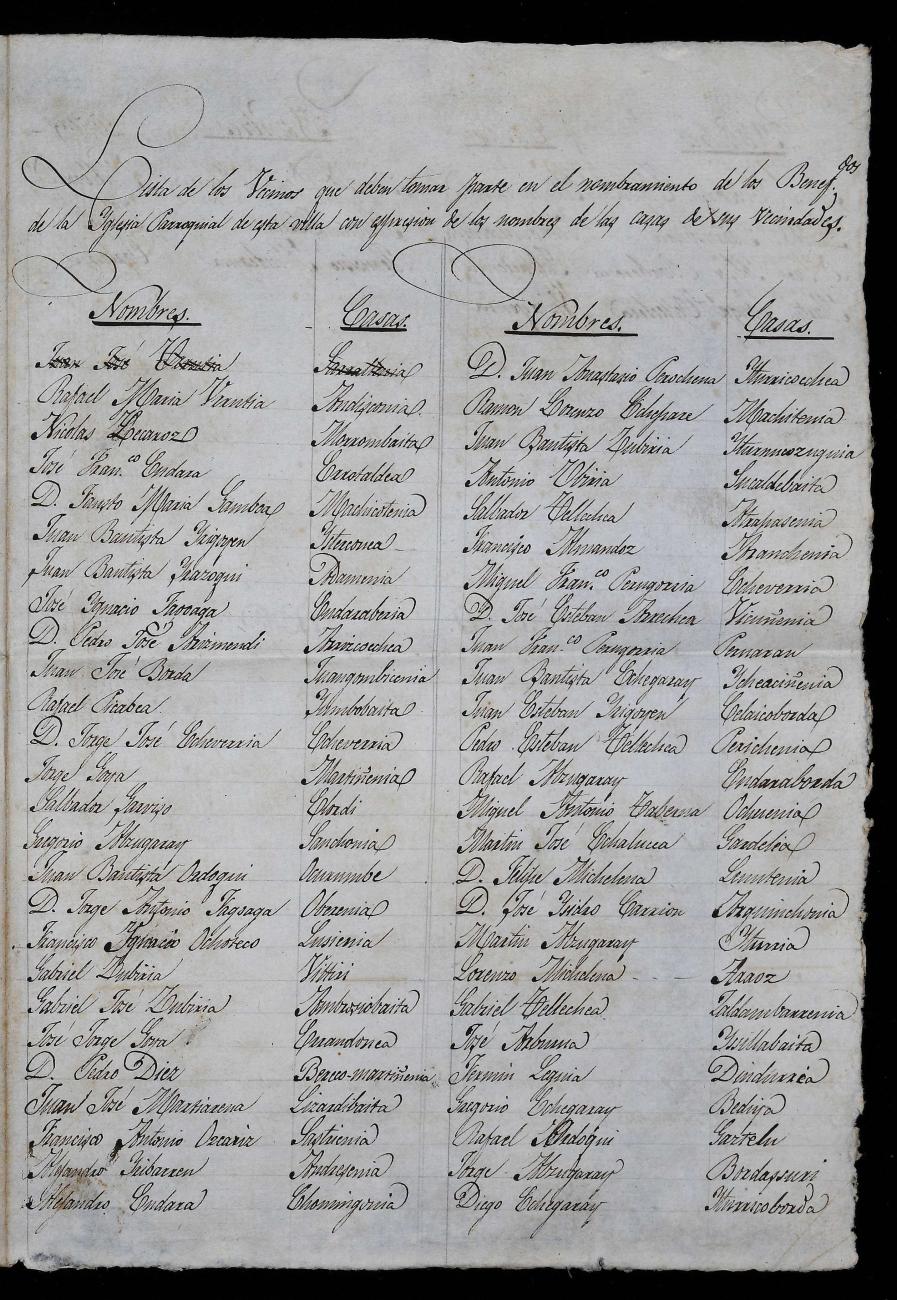 Lista de los Vecinos que deben tomar parte en el nombramiento de los Benef.dos
de la Yglesia Parroquial de esta villa con espresion de los nombres de las casas de sus Vecindades.
Nombres. Casas. Nombres. Casas.
Juan José D. Juan Anastasio Perochena Yturricoechea
Rafael Maria Verutia Andiponia Ramon Lorenzo Echepare Machitenia
Nicolas Lecaroz Morrombaita Juan Bautista Zubiria
José Fran.co Endara Errotaldea Antonio Ubiria Sucaldebaita
D. Fausto Maria Gamboa Machicotenia Salbador Tellechea
Juan Bautista Yrigoyen Francisco Arnandoz
Juan Bautista Yrazoqui Adamenia Miguel Fran.co Perugorria Echeverria
José Ygnacio Endaraberia D. José Esteban Arrechea Vicuñenia
D. Pedro José Arizmendi Arrizcoechea Juan Fran.co Perugorria Pernaran
Juan José Borda Juangombicenia Juan Bautista Echegaray
Rafael Picabea Jambobaita Juan Esteban Yrigoyen Celaicoborda
D. Jorge José Echeverria Echeverria Pedro Esteban Tellechea Perichenia
Jorge Goya Martiñenia Rafael Alzugaray Endaraborda
Salbador Elordi Miguel Antonio Taberna Ochuenia
Gregorio Alzugaray Sanchonia Martin José Echalucea Gardelea
Juan Bautista Ordoqui Ocurumbe D. Felipe Michelena
D. Jorge Antonio Fagoaga Oberenia D. José Ysidro Carrion Arguinchonia
Francisco Ygnacio Ochoteco Lusienia Martin Alzugaray Yturria
Gabriel Zubiria Vittiri Lorenzo Michelena - - - Araoz
Gabriel Jose Zubiria Ambrosiobaita Gabriel Tellechea Zaldambarrenia
José Jorge Goya José
D. Pedro Diez Berco-martiñenia Fermin Leguia Dindurréa
Juan José Martiarena Lizardibaita Gregorio Echegaray Bediya
Francisco Antonio Ozcariz Sastrenia Rafael Ordoqui Gaztelu
Alejandro Yribarren Andresenia Jorge Alzugaray Bordassuri
Alejandro Endara Chomingonia Diego Echegaray Yturricoborda